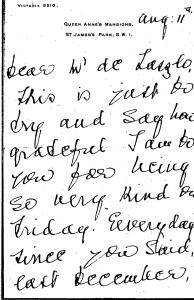 VICTORIA 5210.
QUEEN ANNE'S MANSIONS,
ST JAMES'S PARK, S.W.1.
Aug: 11
Dear Mr de Laszlo,
This is just to
try and say how
grateful I am to
you for being
so very kind on
Friday. Everyday
since you said,
last December,